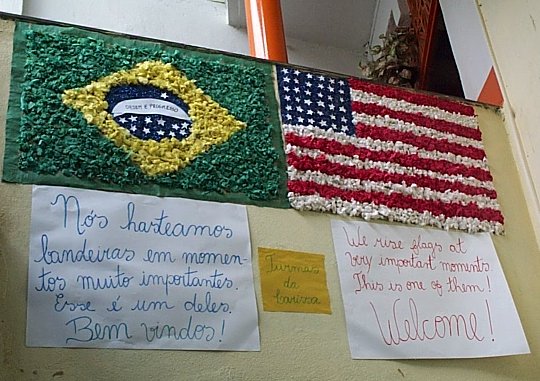 ORDEM E PROGRESSO
Nós hasteamos
bandeiras em momen-
tos muito importantes.
Esse é um deles.
Bem vindos!
Turmas
da
Larissa
We rise flags at
very important moments.
This is one of them!
Welcome!